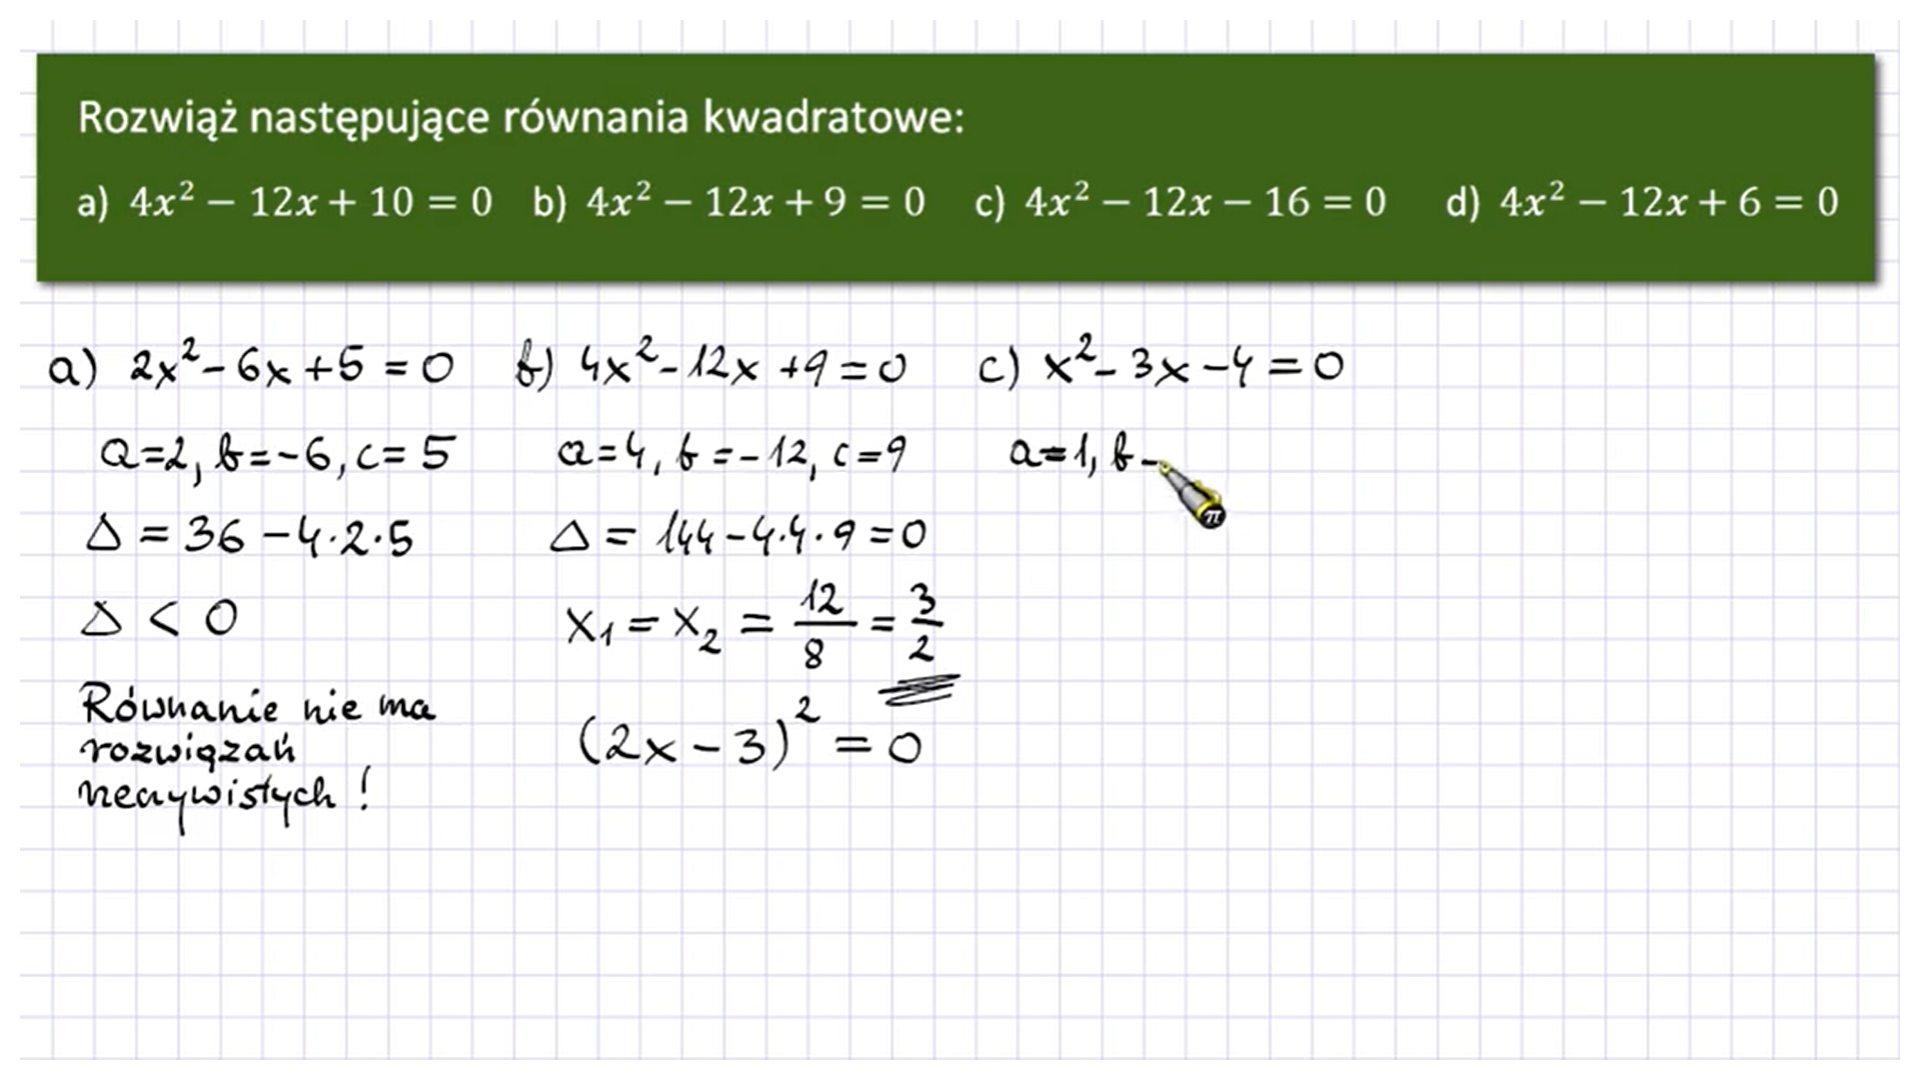 Rozwiąż następujące równania kwadratowe:
a) 4x² − 12x + 10 = 0 b) 4x² − 12x + 9 = 0 c) 4x² − 12x − 16 = 0 d) 4x² − 12x + 6 = 0
a) 2x² - 6x + 5 = 0
a=2, b=-6, c=5
Δ = 36 - 4·2·5
Δ < 0
Równanie nie ma
rozwiązań
rzeczywistych!
b) 4x² - 12x + 9 = 0
a=4, b=-12, c=9
Δ = 144 - 4·4·9 = 0
x₁ = x₂ = 12/8 = 3/2
(2x - 3)² = 0
c) x² - 3x - 4 = 0
a=1, b -
π